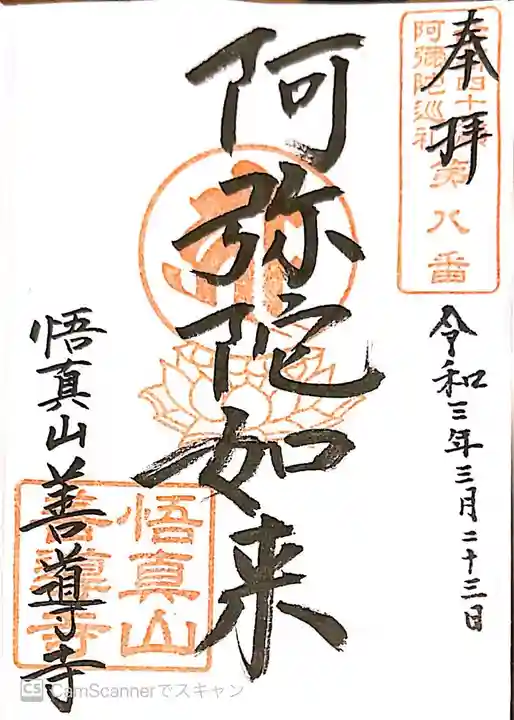 奉拝
阿彌陀巡礼
第八番
令和三年三月二十三日
阿弥陀如来
悟真山善導寺
悟真山
善導寺
CS CamScannerでスキャン